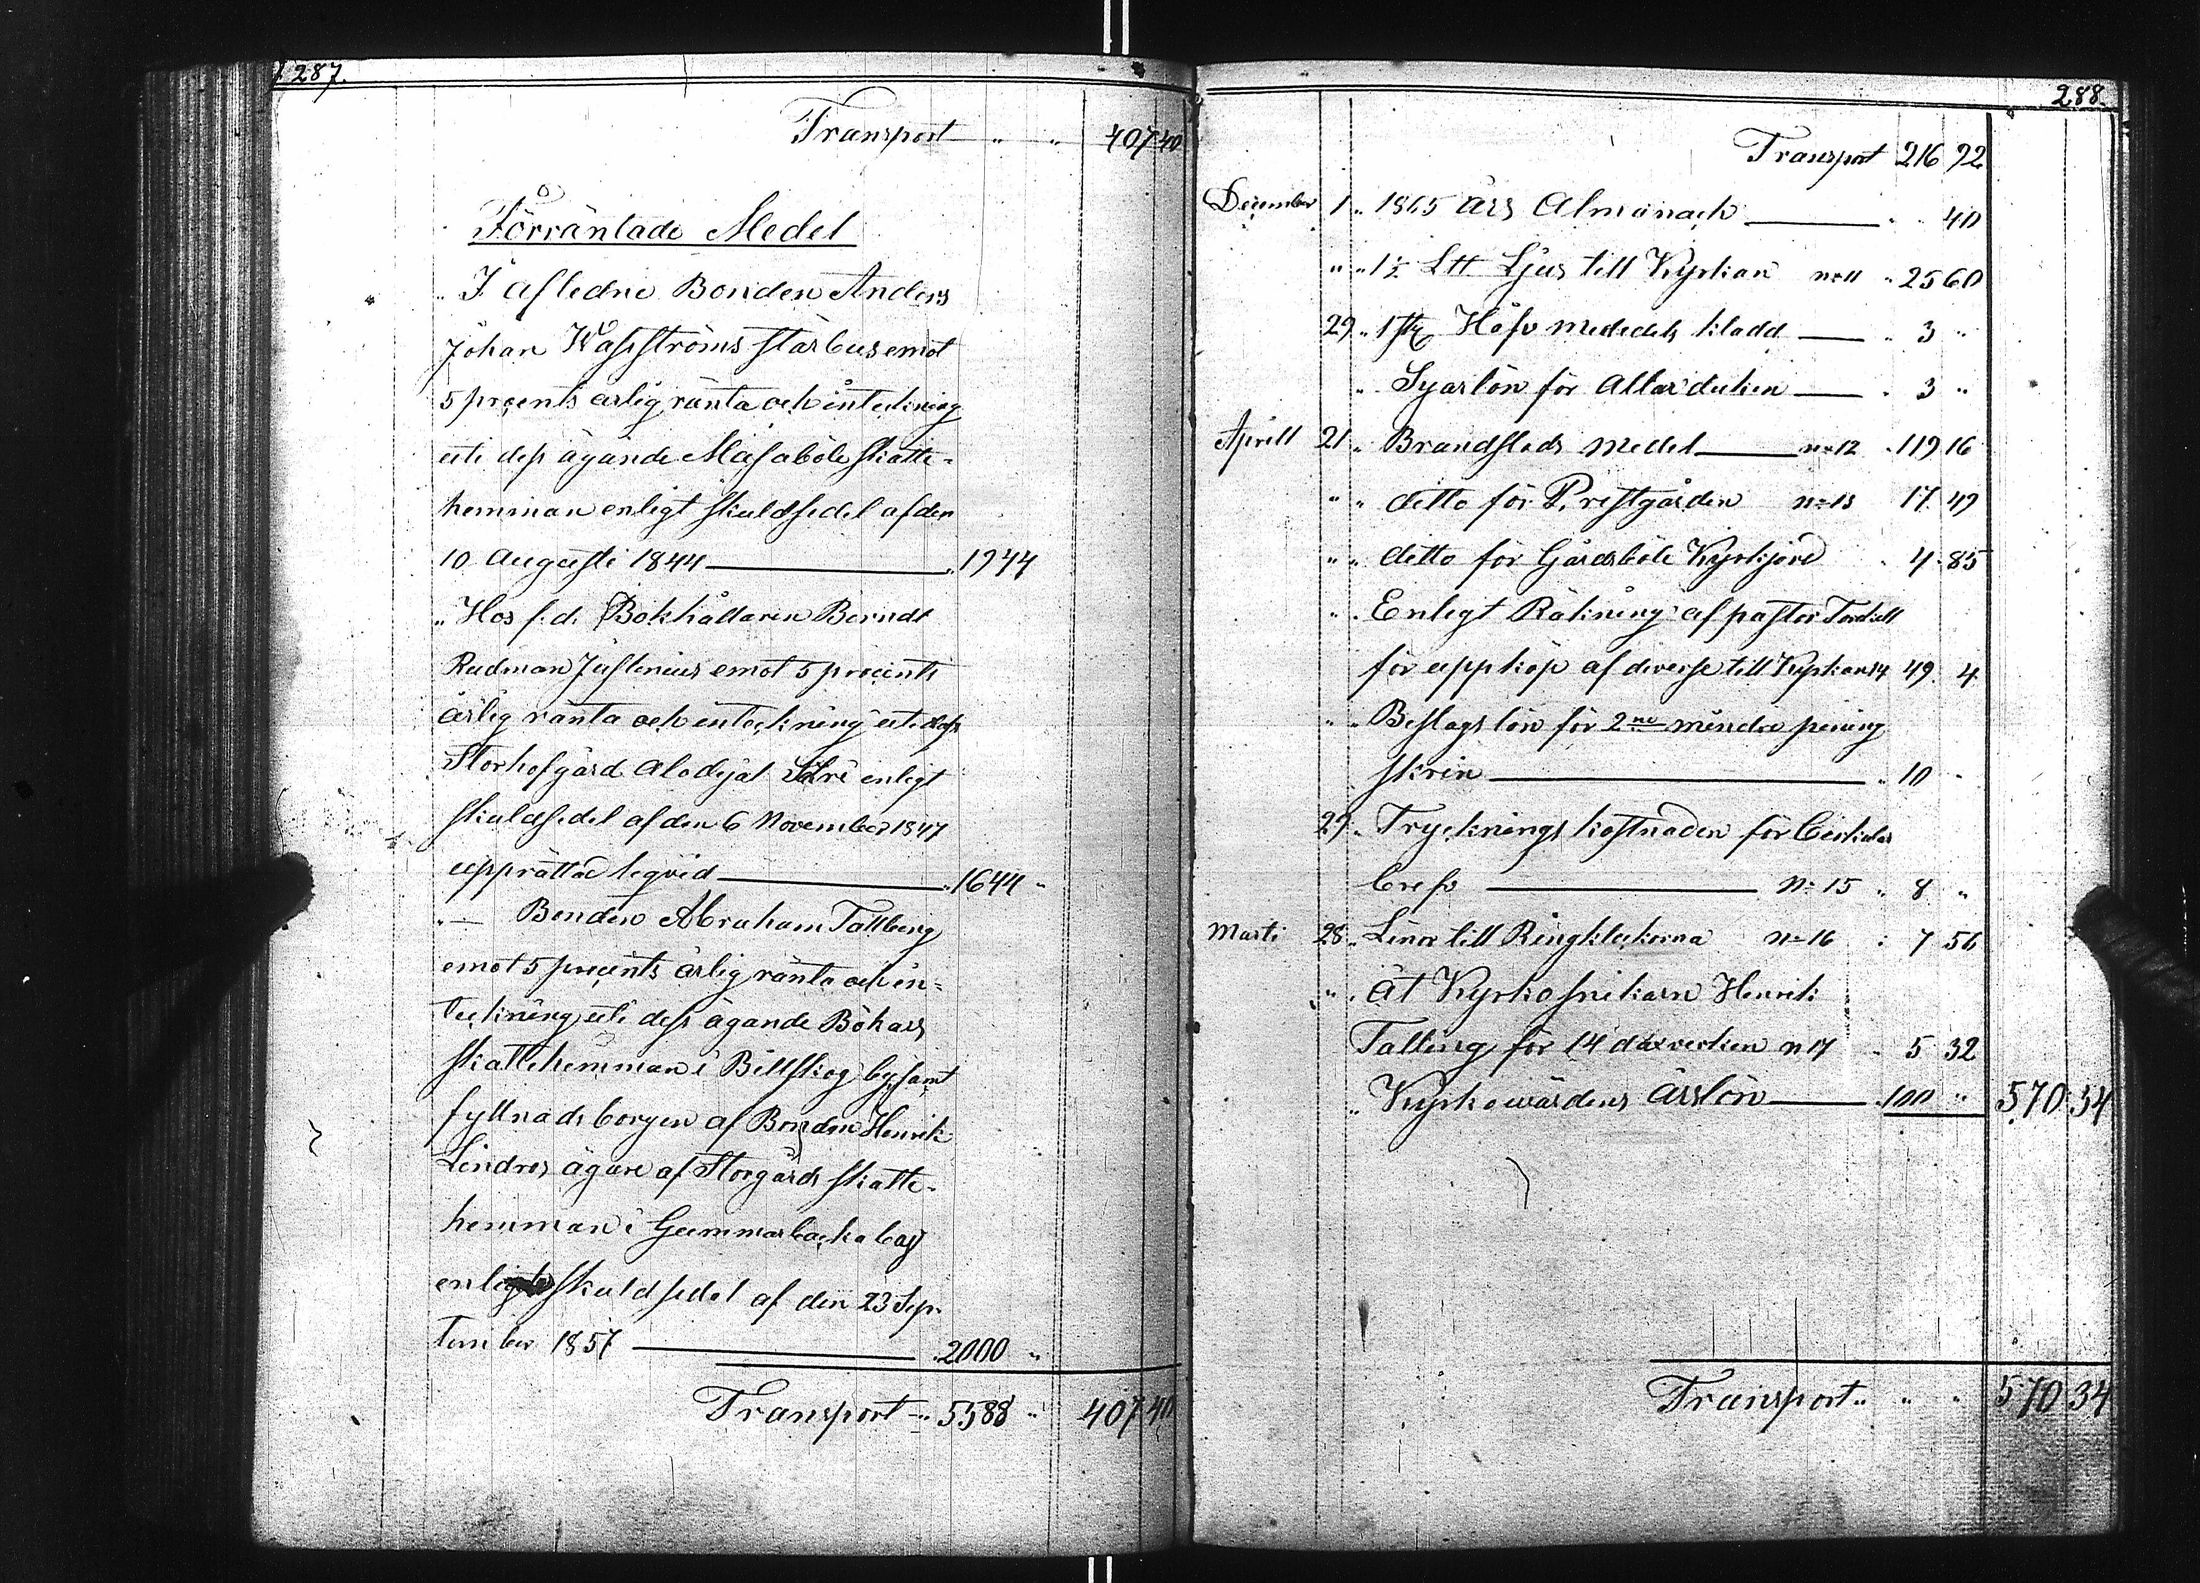 287.
Transport „ „ 407 40
Förräntade Medel
„ I afledne Bonden Anders
Johan Wasströms stärbus emot
5 procents årlig ränta och inteckning
uti dess ägande Masaböle skatte-
hemman enligt skuldsedel af den
10 Augusti 1844 „ 1944
„ Hos f.d. Bokhållaren Berndt
Rudman Juslenius emot 5 procents
årlig ränta och inteckning uti dess
Storhofgård Alodejal Säteri enligt
skuldsedel af den 6 November 1847
upprättad liqvid „ 1644 „
„ — Bonden Abraham Tallberg
emot 5 procents årlig ränta och in-
teckning uti dess ägande Bökars
skattehemman i Biltskog by samt
fyllnads borgen af Bonden Henrik
Lindros ägare af Storgårds skatte-
hemman i Gummarbacka by
enligt skuldsedel af den 23 Sep-
tember 1857 „ 2000 „
Transport „ 5588 „ 407 40
288.
Transport 216 92
December 1 „ 1865 års Almanach „ „ 40
„ „ 1½ L℔ Ljus till Kyrkan no 11 „ 25 60
29 „ 1 st Håfv medeck kladd „ 3 „
„ Syarlön för Altar duken „ 3 „
Aprill 21 „ Brandstods Medel no 12 „ 119 16
„ „ ditto för Prestgården no 13 17 49
„ „ ditto för Gårdsböle Kyrkjord „ 4 85
„ „ Enligt Räkning af pastor
för uppköp af diverse till Kyrkan 14 49 4
„ „ Beslagslön för 2ne mindre pening
skrin „ 10 „
29 „ Trycknings kostnaden för Cirkulär
bref no 15 „ 8 „
Marti 28 „ Linor till Ringklockorna no 16 „ 7 56
„ „ Åt Kyrkosnikarn Henrik
Talling för 14 dax verken n 17 „ 5 32
„ Kyrkowärdens Årslön „ 100 „ 570 34
Transport „ „ „ 570 34